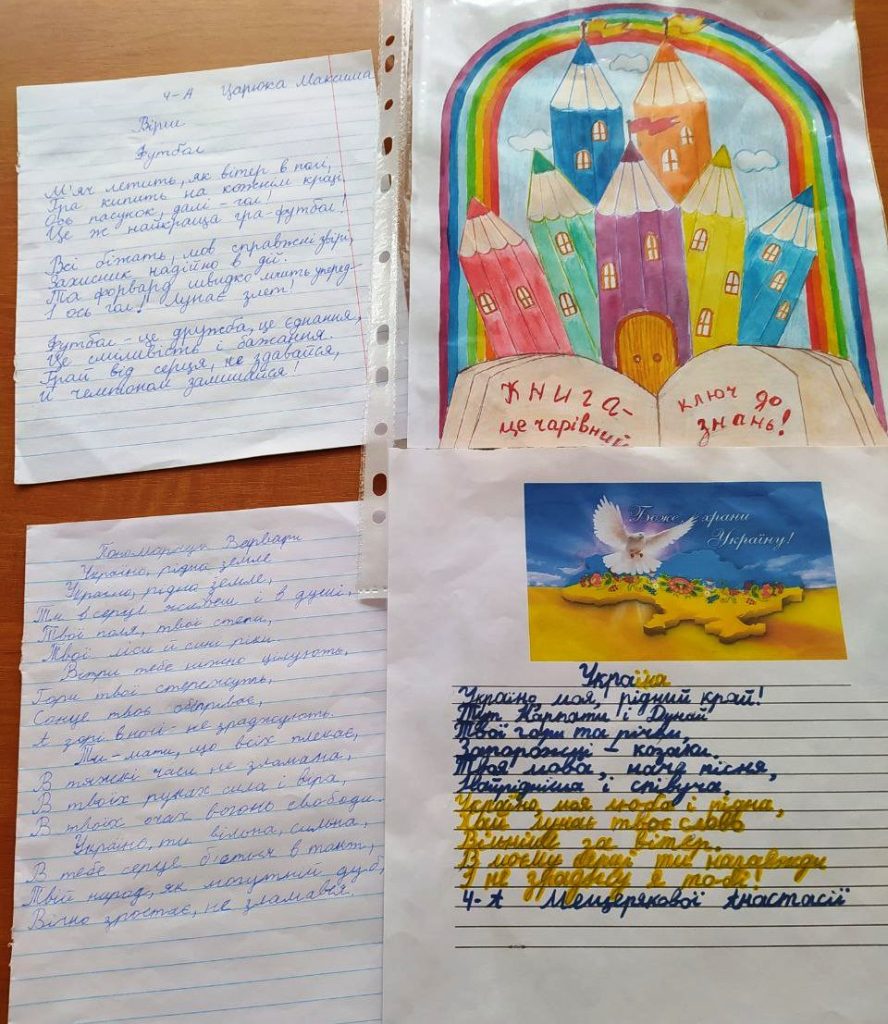 4-А Царюка Максима
Вірш
Футбол
М'яч летить, як вітер в полі,
Гра кипить на кожнім краї.
Ось пасунок, далі - гол!
Це ж найкраща гра-футбол!
Всі біжать, мов справжні звірі,
Захисник надійно в дії
Та форвард швидко мчить уперед-
І ось гол! Лунає злет!
Футбол - це дружба, це єднання,
Це сміливість і бажання.
Грай від серця, не здавайся,
И чемпіоном залишайся!
КНИГА-
це чарівний
ключ до
знань!
Пономариця Варвари
Україно, рідна земле
Україно, рідна земле,
Ти в серце живеш і в душі,
Твої поля, твої степи,
Твої ліси й сині ріки.
Вітри тебе ніжно цілують,
Гори твої стережуть,
Сонце твоє обігріває,
А зорі вночі - не зраджують.
Ти - мати, що всіх плекає,
В тяжкі часи не зламана,
В твоїх руках сила і віра,
В твоїх очах вогонь свободи.
Україно, ти вільна, сильна,
В тебе серця б'ється в такт,
Твій народ, як могутній дуб,
Вічно зростає, не зламався.
Боже, храни
Україну!
Україна
Україно моя, рідний край!
Тут Карпати і Дунай
Твої гори та річки,
Запорожці - козаки.
Твоя мова, наче пісня,
Найрідніша і співуча.
Україно моя люба і рідна,
Хай лунає твоє слово
Вільніше за вітер.
В моєму серці ти назавжди
І не зраджу я тобі.
4-А Мещерякової Анастасії